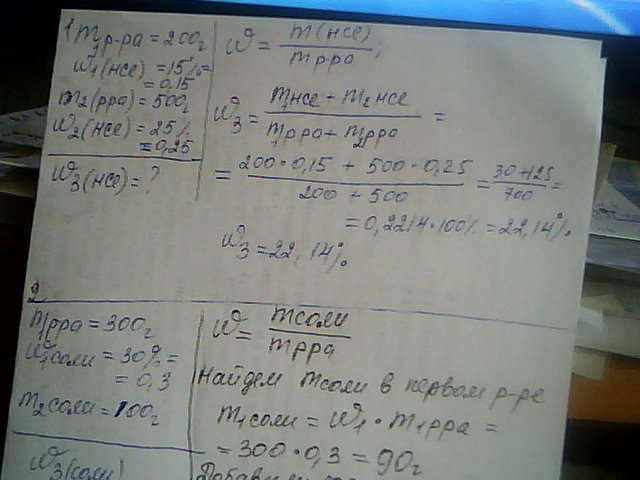 1 m₁р-ра = 200г
W₁(нсе) = 15% =
= 0,15
m₂(рра) = 500г
W₂(нсе) = 25%
= 0,25
W₃(нсе) = ?
W = m(нсе) / mрра ;
W₃ = m₁нсе + m₂нсе / m₁рра + m₂рра =
= 200·0,15 + 500·0,25 / 200 + 500 = 30+125 / 700 =
= 0,2214·100% = 22,14%.
W₃ = 22,14%.
2
m₁рра = 300г
W₁соли = 30% =
= 0,3
m₂соли = 100г
W₃(соли)
W = mсоли / mрра
Найдем mсоли в первом р-ре
m₁соли = W₁ · m₁рра =
= 300·0,3 = 90г